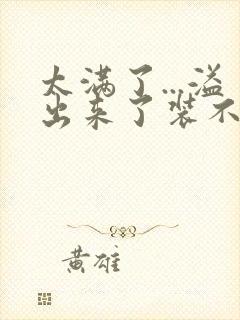 太满了…溢
出来了装不
黄雄